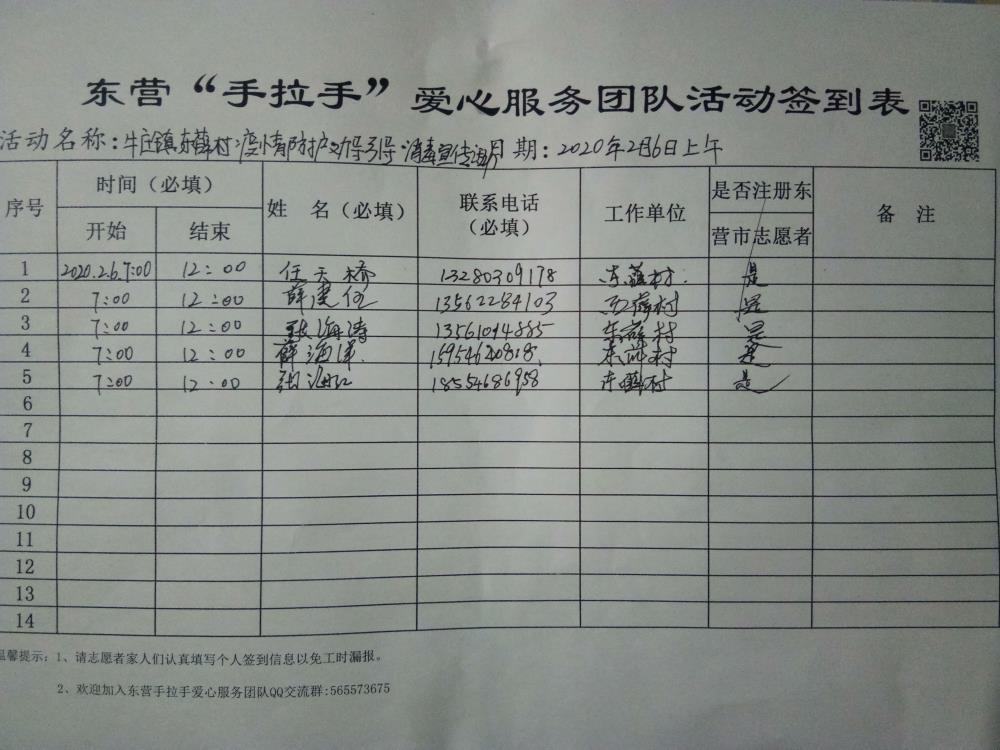 东营“手拉手”爱心服务团队活动签到表
活动名称:牛庄镇东薛村 疫情防护劝导引导 消毒宣传 日期:2020年2月6日上午
序号 时间(必填) 姓 名(必填) 联系电话(必填) 工作单位 是否注册东营市志愿者 备 注
开始 结束
1 2020.2.6.7:00 12:00 任天桥 13280309178 东薛村 是
2 7:00 12:00 薛建 13562284103 西薛村 是
3 7:00 12:00 张海涛 13561094885 东薛村 是
4 7:00 12:00 薛海洋 东薛村 是
5 7:00 12:00 18554686958 东薛村 是
6
7
8
9
10
11
12
13
14
温馨提示:1、请志愿者家人们认真填写个人签到信息以免工时漏报。
2、欢迎加入东营手拉手爱心服务团队QQ交流群:565573675